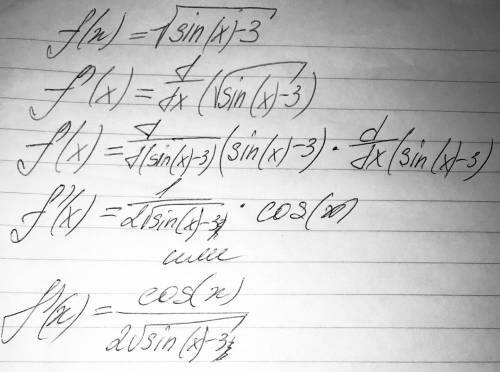 f(x) = √(sin(x)-3)
f'(x) = d/dx (√(sin(x)-3))
f'(x) = d/d(sin(x)-3) (sin(x)-3) · d/dx (sin(x)-3)
f'(x) = 1/(2√(sin(x)-3)) · cos(x)
или
f'(x) = cos(x)/(2√(sin(x)-3))